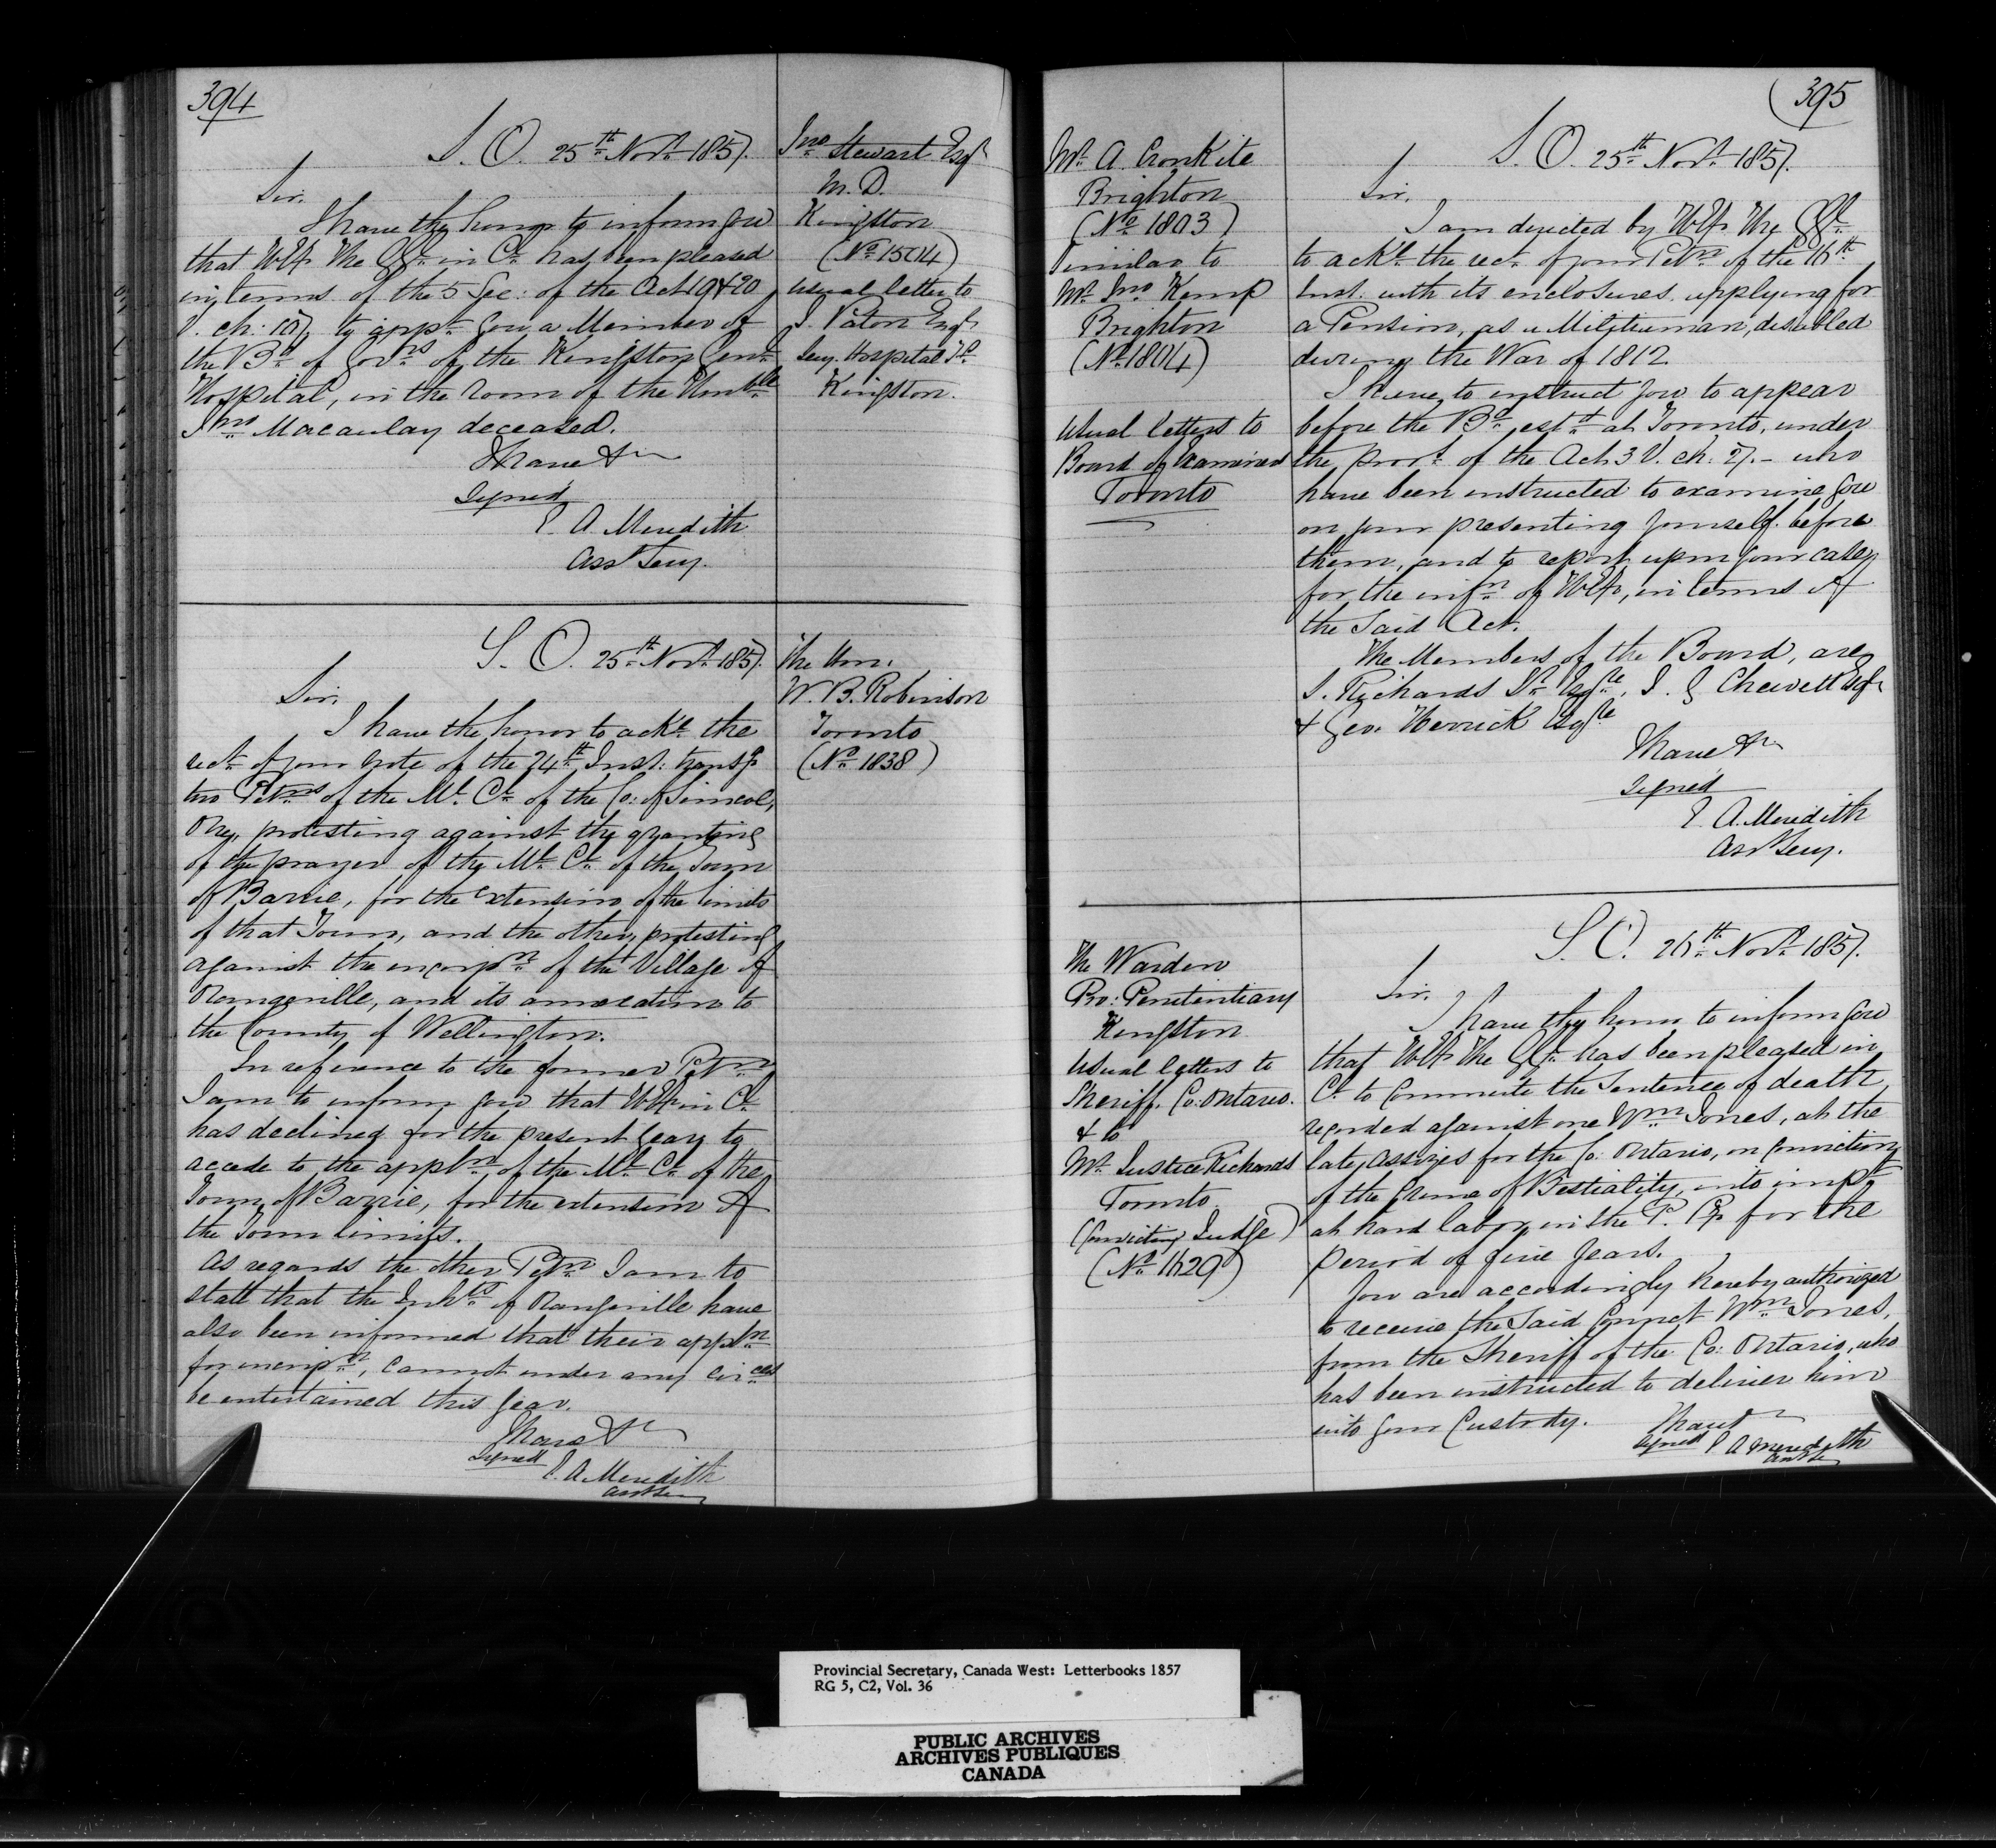 394
S. O. 25th Novr 1857.
Sir,
I have the honor to inform you
that H.E. The G.G. in Cl. has been pleased
in terms of the 5 Sec: of the Act 19 & 20
V. ch: to appt you a Member of
the Bd of Govrs of the Kingston Genl
Hospital, in the room of the Honble
Jno Macaulay deceased.
I have &c
signed
E. A. Meredith
Asst Secy.
Jno Stewart Esqr
M. D.
Kingston
(No 1504)
usual letter to
J. Paton Esqr
Secy. Hospital Bd
Kingston.
S. O. 25th Novr 1857.
Sir,
I have the honor to ackl the
rect of your note of the 24th Inst. transg
two Petns of the Ml Cl of the Co: of Simcoe,
One, protesting against the granting
of the prayer of the Ml Cl of the Town
of Barrie, for the extension of the limits
of that Town, and the other, protesting
against the incorpn of the Village of
Orangeville, and its annexation to
the County of Wellington.
In reference to the former Petn
I am to inform you that H.E. in Cl
has declined for the present year, to
accede to the appln of the Ml Cl of the
Town of Barrie, for the extension of
the Town limits.
As regards the other Petn I am to
state that the Inhts of Orangeville have
also been informed that their appln
for incorpn, cannot under any circes
be entertained this year.
I have &c
signed
E. A. Meredith
Asst Secy
The Hon.
W. B. Robinson
Toronto
(No 1838)
395
Mr A. Cronkite
Brighton
(No 1803)
Similar to
Mr Jno Kemp
Brighton
(No 1804)
Usual letters to
Board of Examiners
Toronto
S. O. 25th Novr 1857.
Sir,
I am directed by H.E. The G.G.
to ackl the rect of your Petn of the 16th
Inst. with its enclosures, applying for
a Pension, as a Militiaman, disabled
during the War of 1812.
I have to instruct you to appear
before the Bd estd at Toronto, under
the provs of the Act 3 V. ch. 27. – who
have been instructed to examine you
on your presenting yourself before
them, and to report upon your case,
for the infn of H.E., in terms of
the Said Act.
The Members of the Board, are
S. Richards Sr Esqre, J. G Chewett Esqr
& Geo. Herrick Esqre
I have &c
signed
E. A. Meredith
Asst Secy.
The Warden
Pro: Penitentiary
Kingston
Usual letters to
Sheriff. Co: Ontario.
& to
Mr Justice Richards
Toronto
(Convicting Judge)
(No 1629)
S. O. 26th Novr 1857.
Sir,
I have the honor to inform you
that H.E. The G.G. has been pleased in
Cl to Commute the Sentence of death,
recorded against one Wm Jones, at the
late, assizes for the Co: Ontario, on conviction
of the Crime of Bestiality, into impt
at hard labor, in the P. P. for the
period of five years.
You are accordingly hereby authorized
to receive the Said Convict Wm Jones,
from the Sheriff of the Co: Ontario, who
has been instructed to deliver him
into your Custody.
I have &c
signed E A Meredith
Asst Sec
Provincial Secretary, Canada West: Letterbooks 1857
RG 5, C2, Vol. 36
PUBLIC ARCHIVES
ARCHIVES PUBLIQUES
CANADA